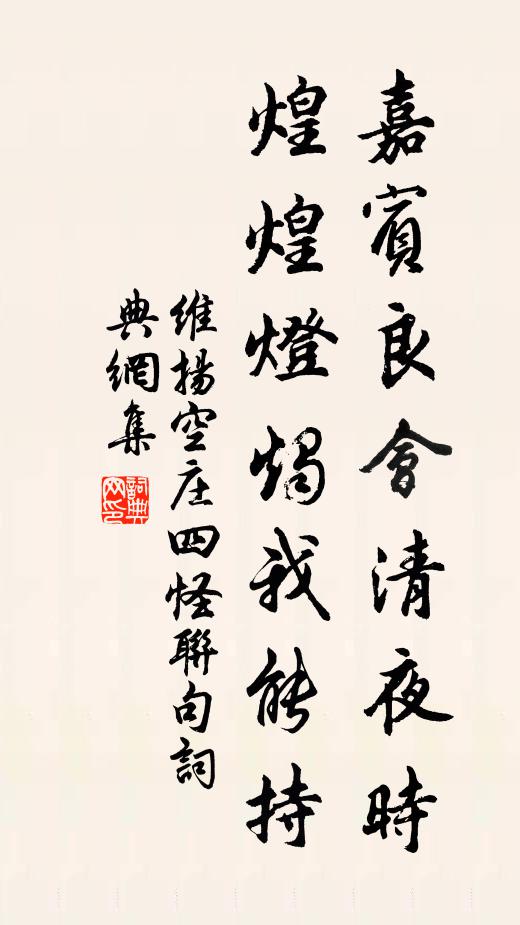 嘉賓良會清夜時
煌煌燈燭我能持
維揚空庄四怪聯句詞
典網集
詞典
网印